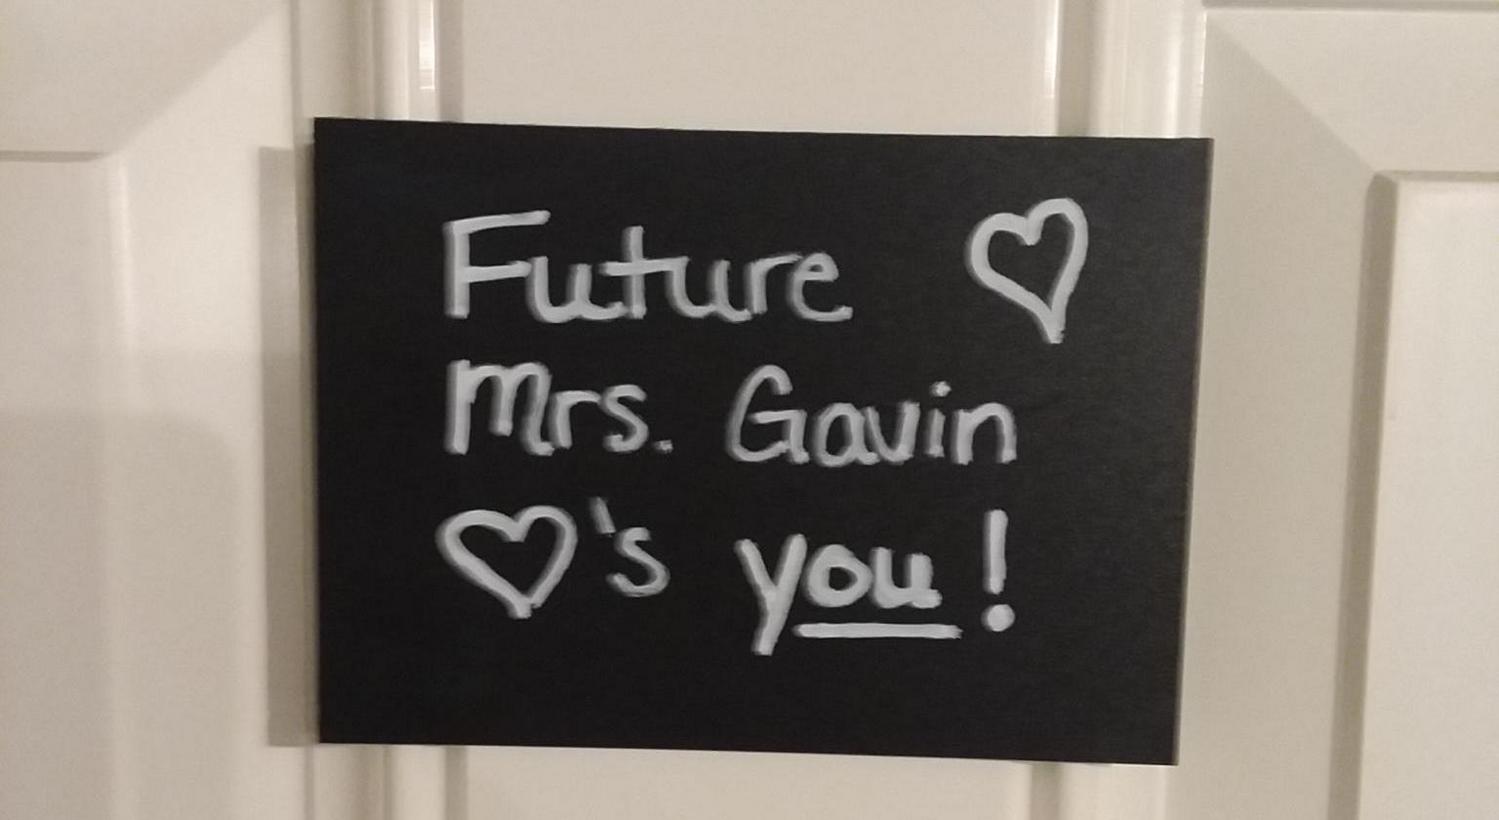 Future ♡
Mrs. Gavin
♡'s you!